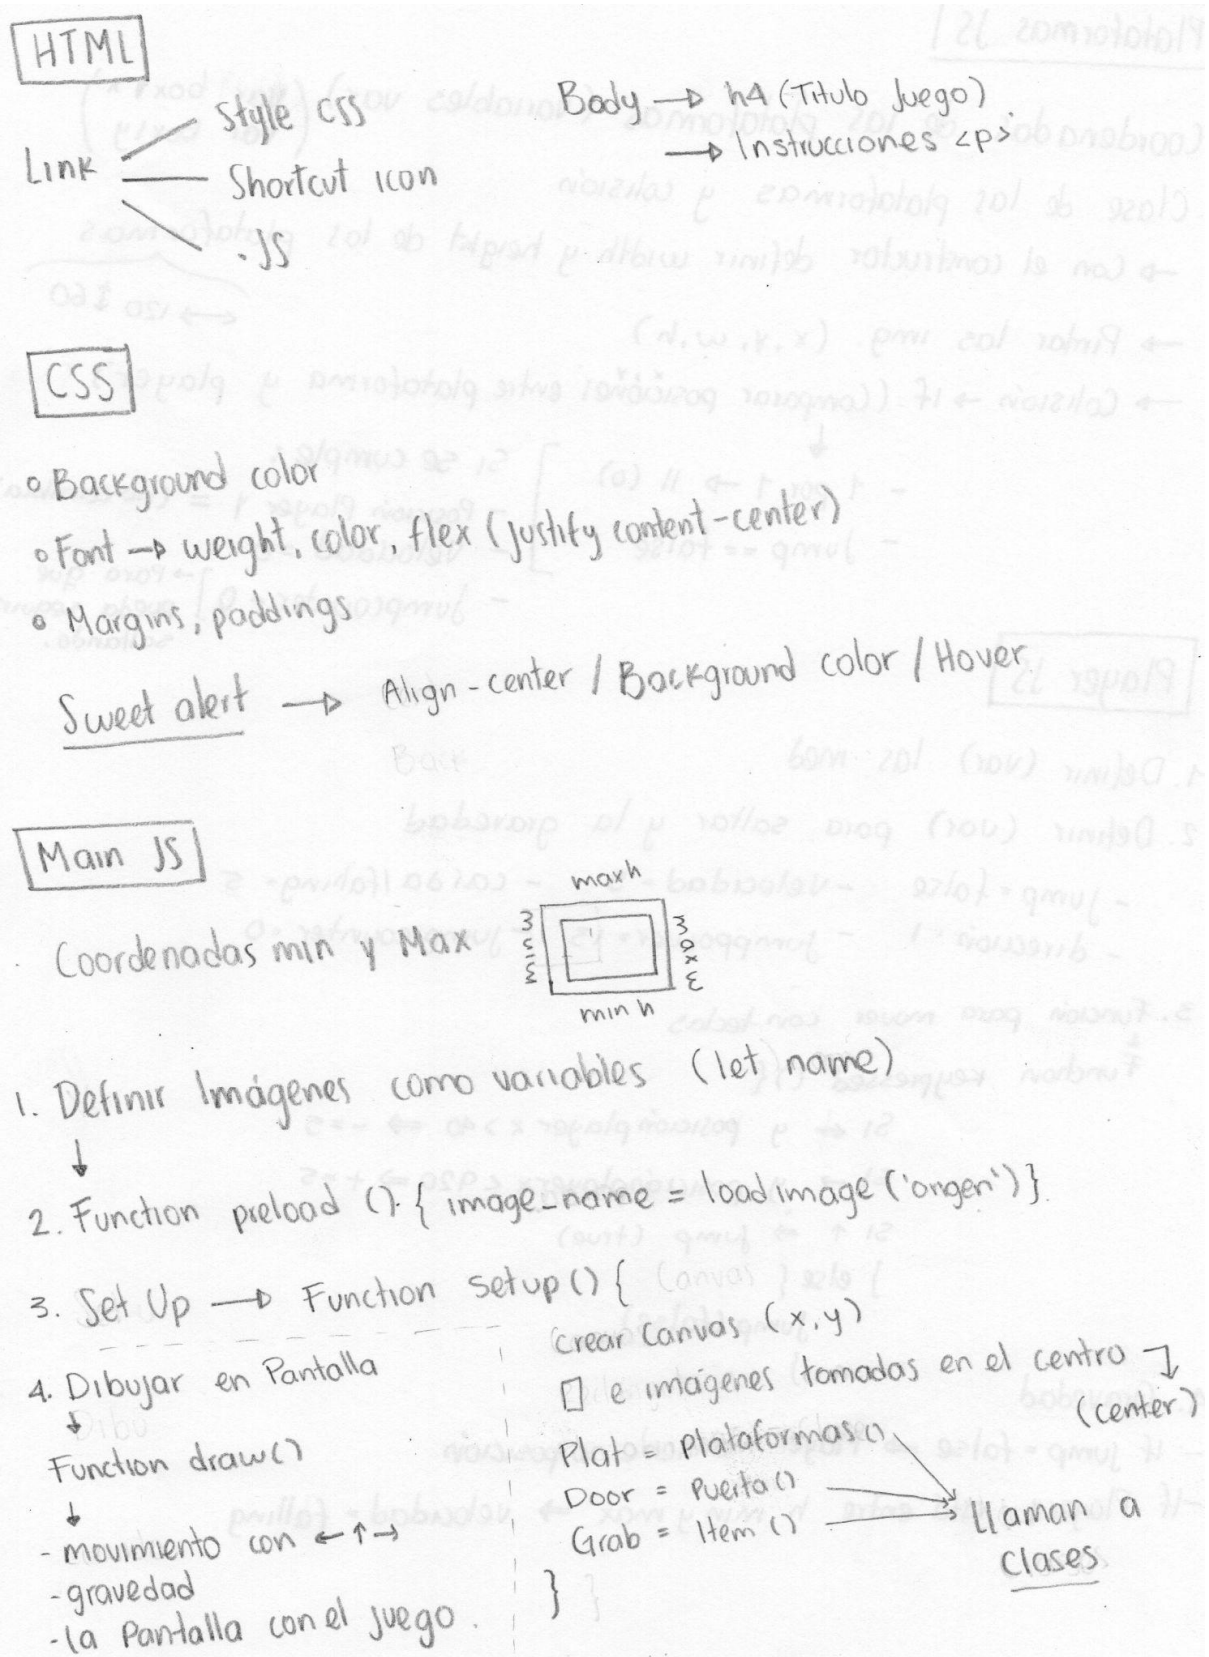 HTML
Link
Style CSS
Shortcut icon
.JS
Body → h4 (Titulo Juego)
→ Instrucciones <p>
CSS
• Background color
• Font → weight, color, flex (justify content-center)
• Margins, paddings
Sweet alert → Align-center / Background color / Hover
Main JS
Coordenadas min y Max
max h
min w
max w
min h
1. Definir Imágenes como variables (let name)
↓
2. Function preload () { image_name = loadimage ('origen')}
3. Set Up → Function setup() {
Crear Canvas (x,y)
□ e imágenes tomadas en el centro
(center)
Plat = plataformas()
Door = Puerta()
Grab = Item ()
Llaman a
clases
}
4. Dibujar en Pantalla
↓
Function draw()
↓
- movimiento con ← ↑ →
- gravedad
- la Pantalla con el juego.